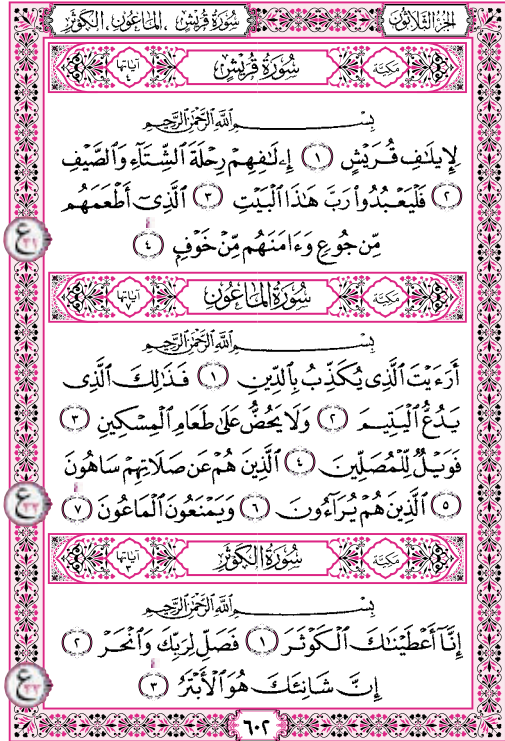 الجزء الثلاثون سورة قريش ، الماعون ، الكوثر
مكية سورة قريش آياتها ٤
بِسْمِ اللَّهِ الرَّحْمَٰنِ الرَّحِيمِ
لِإِيلَٰفِ قُرَيْشٍ ﴿١﴾ إِۦلَٰفِهِمْ رِحْلَةَ ٱلشِّتَآءِ وَٱلصَّيْفِ
﴿٢﴾ فَلْيَعْبُدُوا۟ رَبَّ هَٰذَا ٱلْبَيْتِ ﴿٣﴾ ٱلَّذِىٓ أَطْعَمَهُم
مِّن جُوعٍ وَءَامَنَهُم مِّنْ خَوْفٍ ﴿٤﴾
ع ٣١
مكية سورة الماعون آياتها ٧
بِسْمِ اللَّهِ الرَّحْمَٰنِ الرَّحِيمِ
أَرَءَيْتَ ٱلَّذِى يُكَذِّبُ بِٱلدِّينِ ﴿١﴾ فَذَٰلِكَ ٱلَّذِى
يَدُعُّ ٱلْيَتِيمَ ﴿٢﴾ وَلَا يَحُضُّ عَلَىٰ طَعَامِ ٱلْمِسْكِينِ ﴿٣﴾
فَوَيْلٌ لِّلْمُصَلِّينَ ﴿٤﴾ ٱلَّذِينَ هُمْ عَن صَلَاتِهِمْ سَاهُونَ
﴿٥﴾ ٱلَّذِينَ هُمْ يُرَآءُونَ ﴿٦﴾ وَيَمْنَعُونَ ٱلْمَاعُونَ ﴿٧﴾
ع ٣٢
مكية سورة الكوثر آياتها ٣
بِسْمِ اللَّهِ الرَّحْمَٰنِ الرَّحِيمِ
إِنَّآ أَعْطَيْنَٰكَ ٱلْكَوْثَرَ ﴿١﴾ فَصَلِّ لِرَبِّكَ وَٱنْحَرْ ﴿٢﴾
إِنَّ شَانِئَكَ هُوَ ٱلْأَبْتَرُ ﴿٣﴾
ع ٣٣
٦٠٢